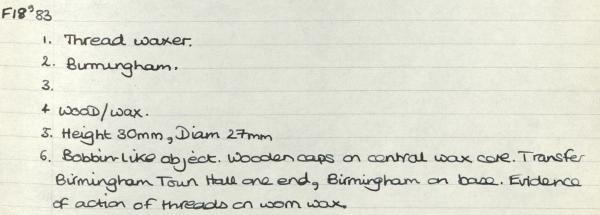 F18⁹83
1. Thread waxer.
2. Birmingham.
3.
4 WOOD/wax.
5. Height 30mm, Diam 27mm
6. Bobbin-like object. Wooden caps on central wax core. Transfer
Birmingham Town Hall one end, Birmingham on base. Evidence
of action of threads on worn wax.